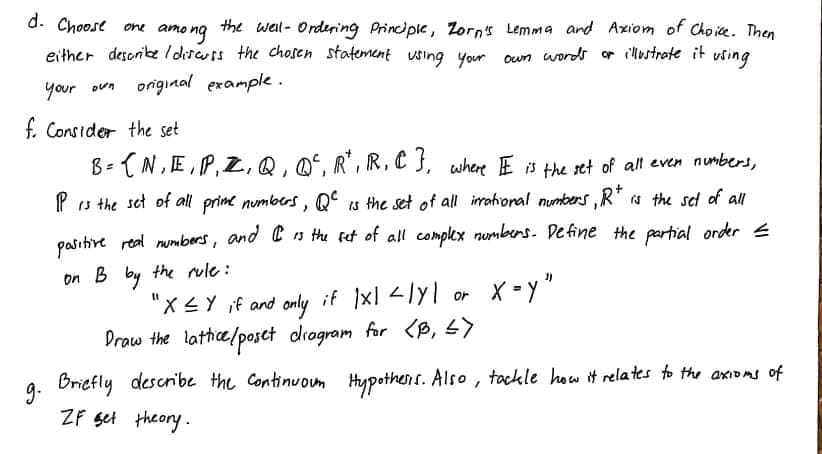 d. Choose one among the Well-Ordering Principle, Zorn's Lemma and Axiom of Choice. Then
either describe/discuss the chosen statement using your own words or illustrate it using
your own original example.
f. Consider the set
B = {N, E, P, Z, Q, Qᶜ, R⁺, R, C}, where E is the set of all even numbers,
P is the set of all prime numbers, Qᶜ is the set of all irrational numbers, R⁺ is the set of all
positive real numbers, and C is the set of all complex numbers. Define the partial order ≤
on B by the rule:
"X ≤ Y if and only if |x| < |y| or X = Y"
Draw the lattice/poset diagram for <B, ≤>
g. Briefly describe the Continuoum Hypothesis. Also, tackle how it relates to the axioms of
ZF set theory.